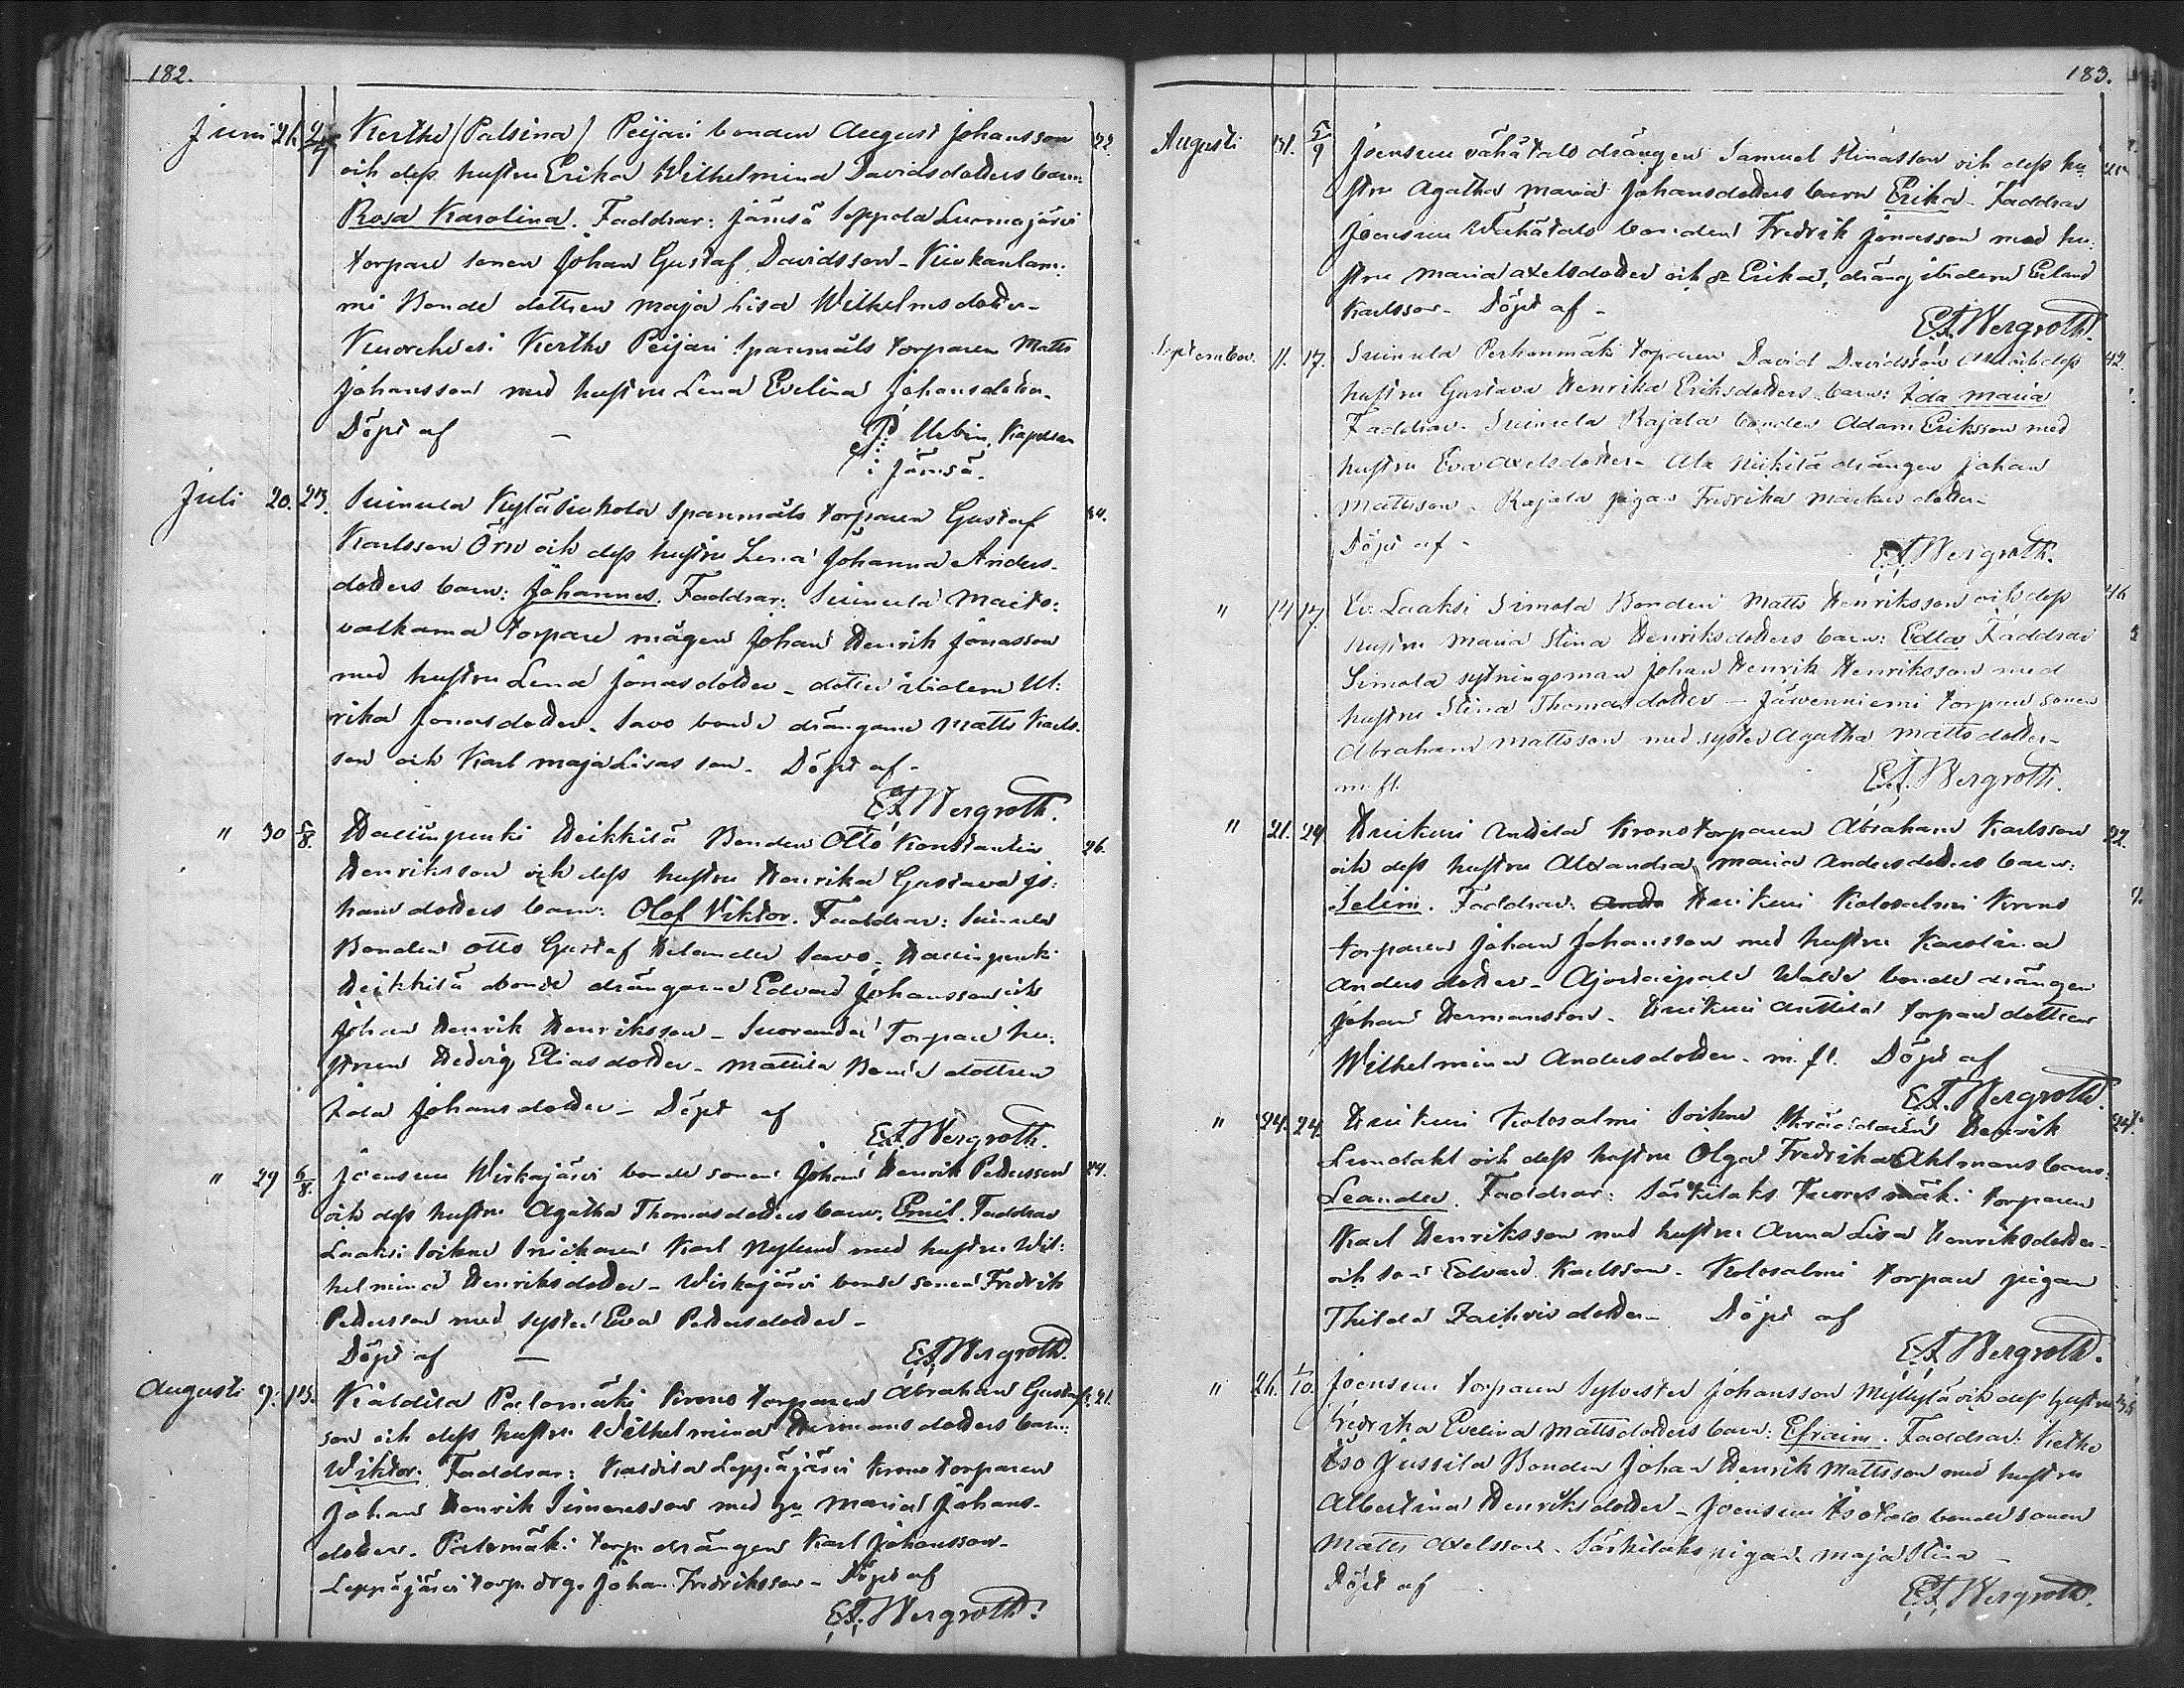 182.
Juni 26. Kertte (Palsina) Peijari bonden August Johansson 22.
och dess hustru Erika Wilhelmina Davidsdotters barn:
Rosa Karolina. Faddrar: Jämsä Seppola Luomajärvi
torpare sonen Johan Gustaf Davidsson - Kivkanlam:
mi Bonde dottren Maja Lisa Wilhelmsdotter -
Kuorehvesi Kertte Peijari Spanmåls torparen Matts
Johansson med hustru Lena Evelina Johansdotter.
Döpt af — Kaplan
i Jämsä.
Juli 20. 23. Suinula Kylä Spanmåls torparen Gustaf 34.
Karlsson Örn och dess hustru Lena Johanna Anders-
dotters barn: Johannes. Faddrar: Suinula Maito:
valkama torpare mågen Johan Henrik Jonasson
med hustru Lena Jonasdotter - dotter ibidem Ul:
rika Jonasdotter. Savo bonde drängarne Matts Karls-
son och Karl Maja Lisas son. Döpt af -
E.A. Wergroth.
" 30 5/8. Hauhnpenki Heikkilä Bonden Otto Konstantin 26.
Henriksson och dess hustru Henrika Gustava Jo:
hansdotters barn: Olof Viktor. Faddrar: Suinula
Bonden Otto Gustaf Helander Savo -
Heikkilä bonde drängarne Edvard Johansson och
Johan Henrik Henriksson - Torpare hu:
strun Hedvig Eliasdotter - Mattila Bonde dottren
Ida Johansdotter - Döpt af
E.A. Wergroth.
" 29 6/8. Joensuu Wirkajärvi bonde sonen Johan Henrik Pettersson 24.
och dess hustru Agatha Thomasdotters barn: Emil. Faddrar
Laaksi Snickaren Karl Nylund med hustru Wil:
helmina Henriksdotter - Wirkajärvi bonde sonen Fredrik
Pettersson med syster Eva Pettersdotter -
Döpt af — E.A. Wergroth.
Augusti 9. 13. Käldila Palomäki Krono torparen Abraham Gustafs- 21.
son och dess hustru Wilhelmina Hermansdotters barn:
Wiktor. Faddrar: Kaldila Leppäjärvi Krono torparen
Johan Henrik Simonsson med hu Maria Johans-
dotter. Palomäki torp. drängen Karl Johansson -
Leppäjärvi torp. drg. Johan Fredriksson - Döpt af
E.A. Wergroth.
183.
Augusti 31. 5/9 Joensuu vähätalo drängen Samuel Stinasson och dess hu-
stru Agatha Maria Johansdotters barn Erika - Faddrar
Joensuu Wähätalo bonden Fredrik Jonasson med hu:
stru Maria Axelsdotter och Erika, dräng ibidem Erland
Karlsson - Döpt af -
E.A. Wergroth.
September. 11. 17. Suinula Perhonmäki torparen David Davidsson och dess 42.
hustru Gustava Henrika Eriksdotters barn: Ida Maria
Faddrar - Suinula Rajala bonden Adam Eriksson med
hustru Eva Axelsdotter - Ala drängen Johan
Mattsson - Rajala pigan Fredrika Markusdotter -
Döpt af -
E.A. Wergroth.
" 14 17. Ev. Laaksi Simola Bonden Matts Henriksson och dess 46
hustru Maria Stina Henriksdotters barn: Edla Faddrar
Simola sytningsman Johan Henrik Henriksson med
hustru Stina Thomasdotter - Järvenniemi torpare sonen
Abraham Mattsson med syster Agatha Mattsdotter -
m. fl. E.A. Wergroth.
" 21. 24. Huikuri Anttila Krono torparen Abraham Karlsson 22.
och dess hustru Alexandra Maria Andersdotters barn:
Selim. Faddrar: Huikuri Kolosalmi Krono
torparen Johan Johansson med hustru Karolina
Andersdotter - bonde drängen
Johan Hermansson - Huikuri Anttila torpare dottren
Wilhelmina Andersdotter - m. fl. Döpt af
E.A. Wergroth.
" 24. 24. Huikuri Kolosalmi Skräddaren Henrik
Lundahl och dess hustru Olga Fredrika Ahlmans barn:
Leander. Faddrar: Särkilaks torparen
Karl Henriksson med hustru Anna Lisa Henriksdotter -
och son Edvard Karlsson - Kolosalmi torpare pigan
Thilda - Döpt af
E.A. Wergroth.
" 26. 1/10. Joensuu torparen Sylvester Johansson Myllylä och dess hustru 35
Fredrika Evelina Mattsdotters barn: Efraim. Faddrar:
Iso Jussila Bonden Johan Henrik Mattsson med hustru
Albertina Henriksdotter - Joensuu Isotalo bonde sonen
Matts Axelsson - Särkilaks pigan Maja Stina -
Döpt af — E.A. Wergroth.